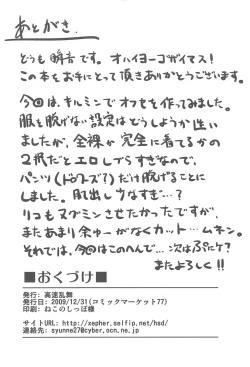 あとがき。
どうも瞬音です。オハイヨーゴザイマス！
この本をお手にとって頂きありがとうございます。
今回は、キルミンでオフセを作ってみました。
服を脱げない設定はどうしようか迷い
ましたが、全裸か完全に着てるかの
2択だとエロしづらすぎなので、
パンツ(ドロワーズ?)だけ脱げることに
しました。肌出し少なすぎ…？
リコもヌグミンさせたかったですが、
またあまり余ゆーがなくカット…ムネン。
それでは、今回はこのへんで…次はぷにケ?
またよろしく!!
■おくづけ■
発行: 高速乱舞
発行日: 2009/12/31(コミックマーケット77)
印刷: ねこのしっぽ様
サイトURL: http://xepher.selfip.net/hsd/
連絡先: syunne27@cyber.ocn.ne.jp